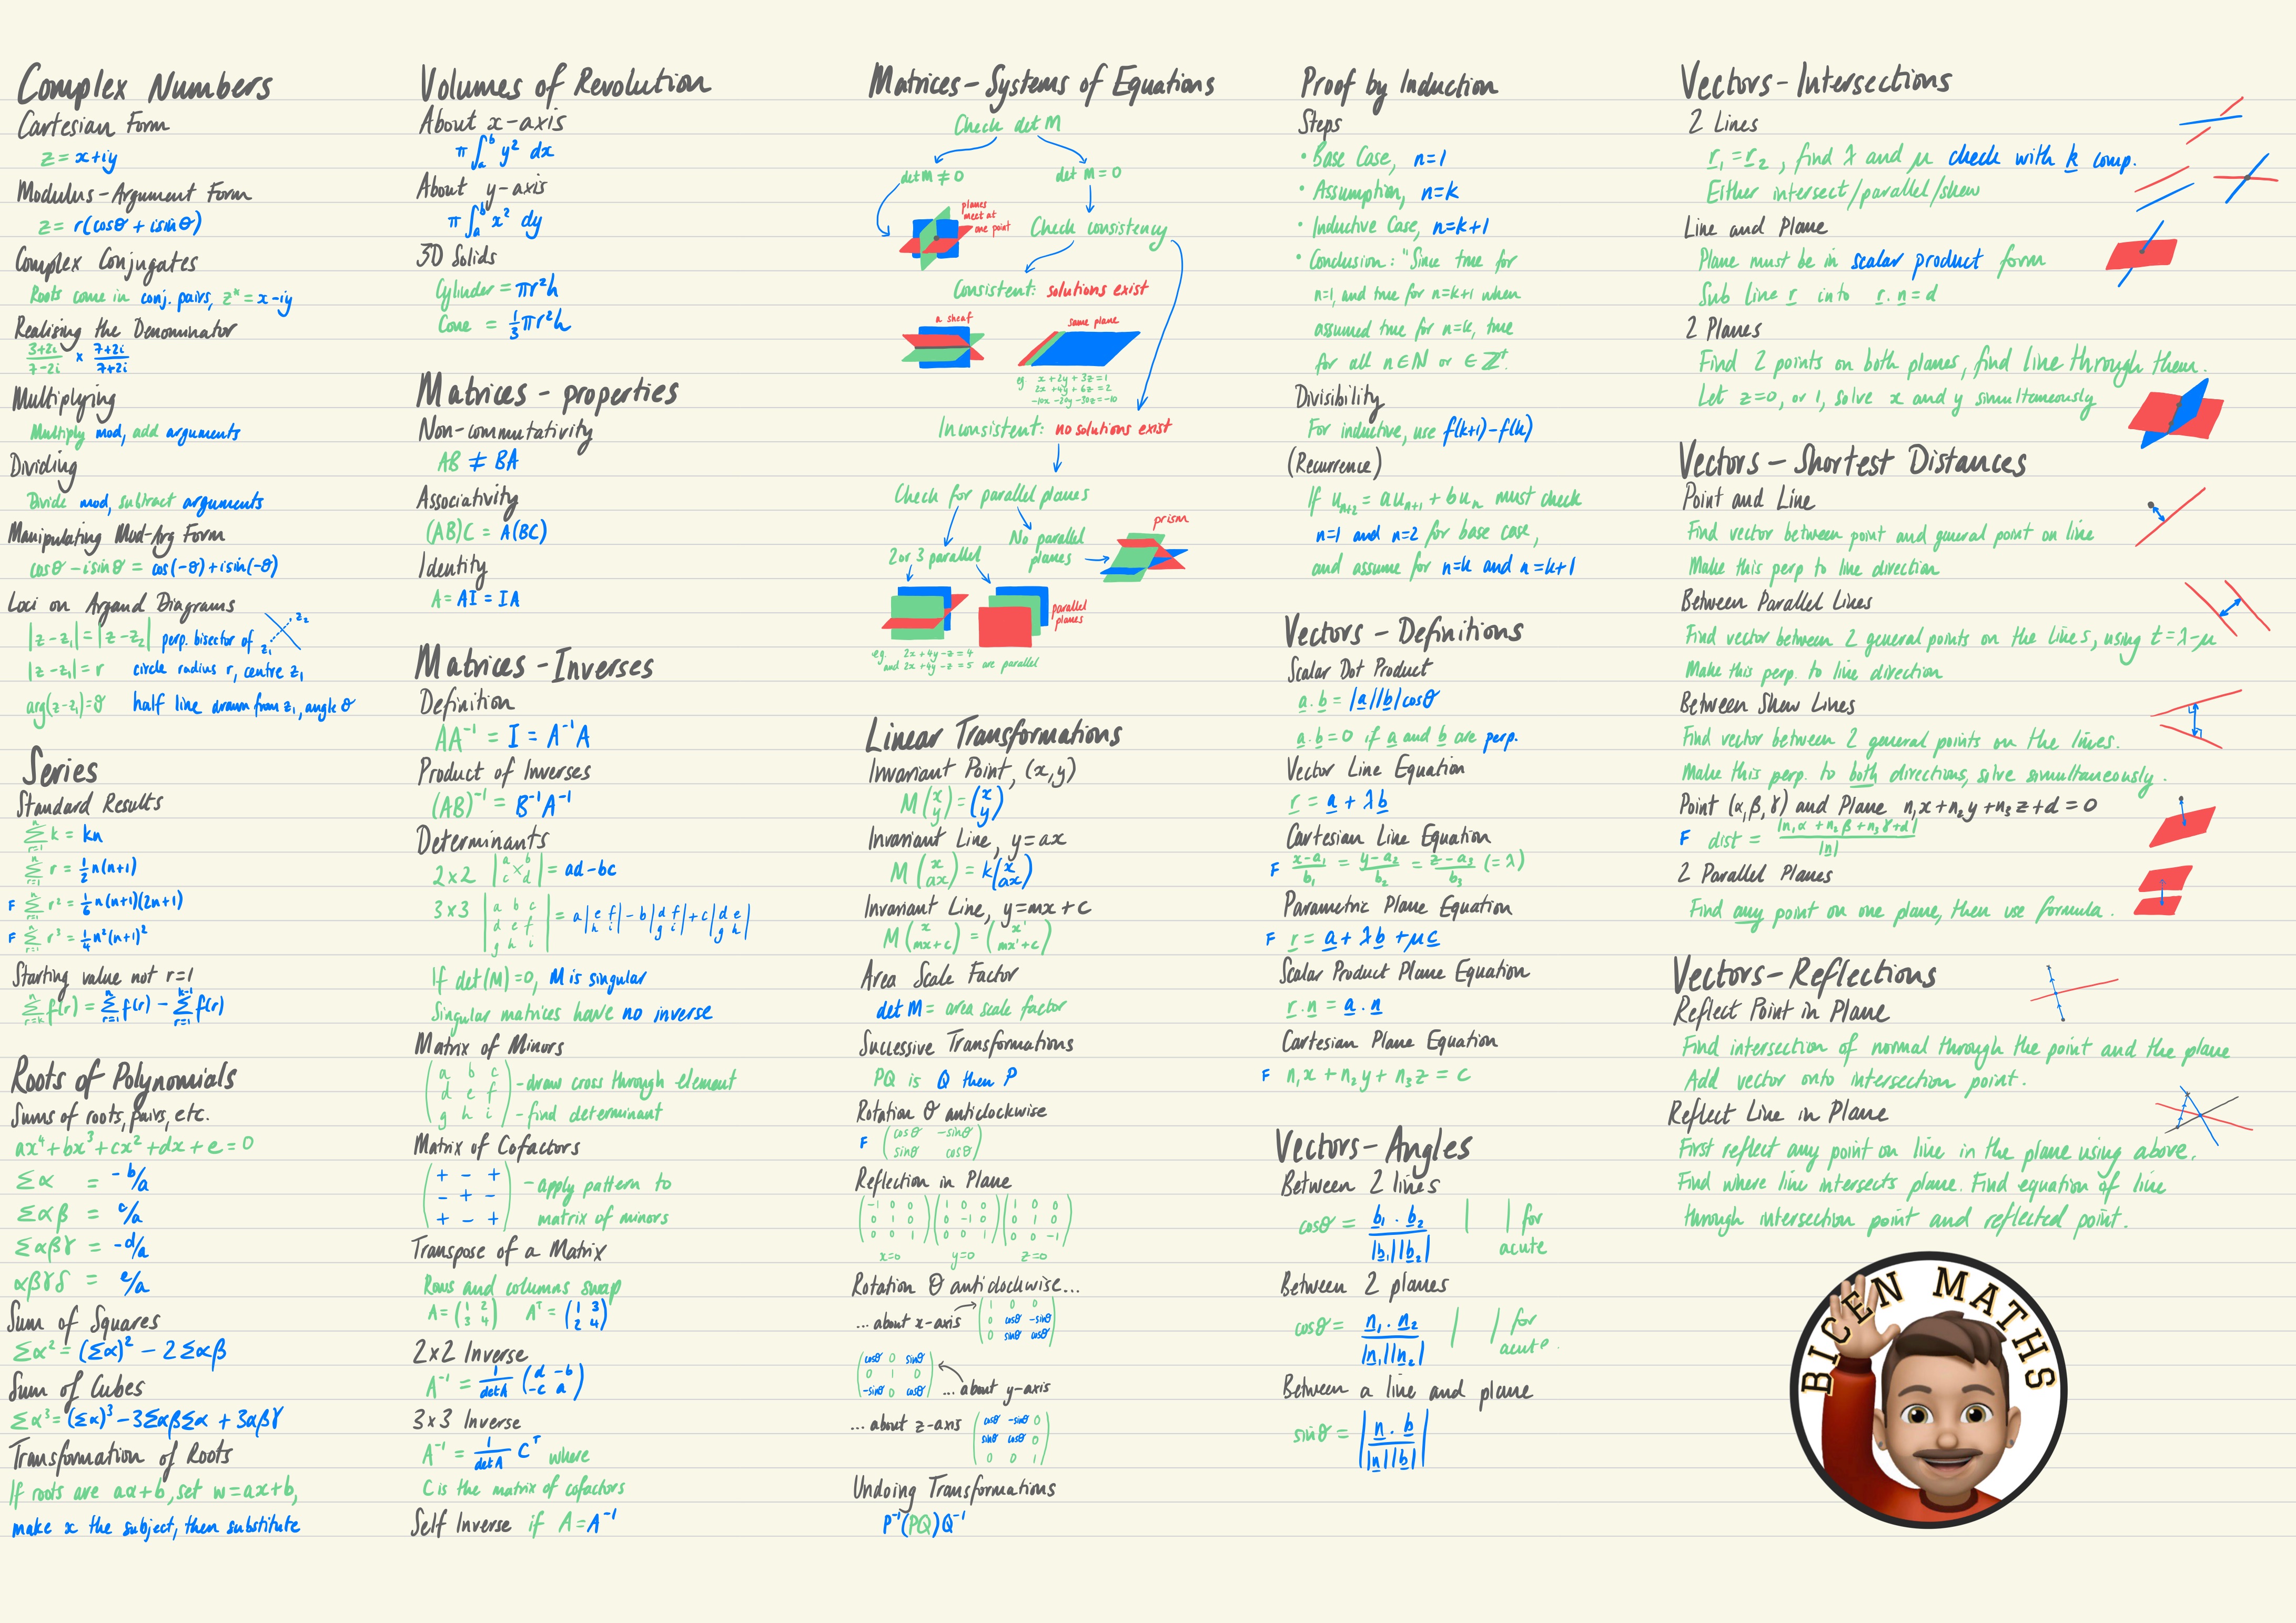 Complex Numbers
Cartesian Form
z = x+iy
Modulus-Argument Form
z = r(cosθ + isinθ)
Complex Conjugates
Roots come in conj. pairs, z* = x-iy
Realising the Denominator
3+2i/7-2i × 7+2i/7+2i
Multiplying
Multiply mod, add arguments
Dividing
Divide mod, subtract arguments
Manipulating Mod-Arg Form
cosθ - isinθ = cos(-θ)+isin(-θ)
Loci on Argand Diagrams
|z-z₁| = |z-z₂| perp. bisector of z₁ z₂
|z-z₁| = r circle radius r, centre z₁
arg(z-z₁)=θ half line drawn from z₁, angle θ
Series
Standard Results
∑ₖ₌₁ⁿ k = kn
∑ᵣ₌₁ⁿ r = ½n(n+1)
F ∑ᵣ₌₁ⁿ r² = 1/6 n(n+1)(2n+1)
F ∑ᵣ₌₁ⁿ r³ = ¼n²(n+1)²
Starting value not r=1
∑ᵣ₌ₖⁿ f(r) = ∑ᵣ₌₁ⁿ f(r) - ∑ᵣ₌₁ᵏ⁻¹ f(r)
Roots of Polynomials
Sums of roots, pairs, etc.
ax⁴+bx³+cx²+dx+e=0
∑α = -b/a
∑αβ = c/a
∑αβγ = -d/a
αβγδ = e/a
Sum of Squares
∑α² = (∑α)² - 2∑αβ
Sum of Cubes
∑α³ = (∑α)³ - 3∑αβ∑α + 3αβγ
Transformation of Roots
If roots are aα+b, set w=ax+b,
make x the subject, then substitute
Volumes of Revolution
About x-axis
π∫ₐᵇ y² dx
About y-axis
π∫ₐᵇ x² dy
3D Solids
Cylinder = πr²h
Cone = ⅓πr²h
Matrices - properties
Non-commutativity
AB ≠ BA
Associativity
(AB)C = A(BC)
Identity
A = AI = IA
Matrices - Inverses
Definition
AA⁻¹ = I = A⁻¹A
Product of Inverses
(AB)⁻¹ = B⁻¹A⁻¹
Determinants
2×2 |a b
c d| = ad-bc
3×3 |a b c
d e f
g h i| = a|e f h i| - b|d f g i| + c|d e g h|
If det(M)=0, M is singular
Singular matrices have no inverse
Matrix of Minors
(a b c
d e f -draw cross through element
g h i) -find determinant
Matrix of Cofactors
(+ - +
- + - -apply pattern to
+ - +) matrix of minors
Transpose of a Matrix
Rows and columns swap
A = (1 2 Aᵀ = (1 3
3 4) 2 4)
2×2 Inverse
A⁻¹ = 1/detA (d -b
-c a)
3×3 Inverse
A⁻¹ = 1/detA Cᵀ where
C is the matrix of cofactors
Self Inverse if A=A⁻¹
Matrices - Systems of Equations
Check det M
det M ≠ 0
det M = 0
planes
meet at
one point
Check consistency
Consistent: solutions exist
a sheaf
same plane
eg. x + 2y + 3z = 1
2x + 4y + 6z = 2
-10x -20y -30z = -10
Inconsistent: no solutions exist
Check for parallel planes
2 or 3 parallel
No parallel
planes
prism
parallel
planes
e.g. 2x + 4y - z = 4
and 2x + 4y - z = 5 are parallel
Linear Transformations
Invariant Point, (x,y)
M(x
y) = (x
y)
Invariant Line, y=ax
M(x
ax) = k(x
ax)
Invariant Line, y=mx+c
M(x
mx+c) = (x'
mx'+c)
Area Scale Factor
det M = area scale factor
Successive Transformations
PQ is Q then P
Rotation θ anticlockwise
F (cosθ -sinθ
sinθ cosθ)
Reflection in Plane
(-1 0 0 (1 0 0 (1 0 0
0 1 0 0 -1 0 0 1 0
0 0 1) 0 0 1) 0 0 -1)
x=0 y=0 z=0
Rotation θ anticlockwise...
...about x-axis
(1 0 0
0 cosθ -sinθ
0 sinθ cosθ)
(cosθ 0 sinθ
0 1 0
-sinθ 0 cosθ)
...about y-axis
...about z-axis
(cosθ -sinθ 0
sinθ cosθ 0
0 0 1)
Undoing Transformations
P⁻¹(PQ)Q⁻¹
Proof by Induction
Steps
• Base Case, n=1
• Assumption, n=k
• Inductive Case, n=k+1
• Conclusion: "Since true for
n=1, and true for n=k+1 when
assumed true for n=k, true
for all n∈ℕ or ∈ℤ⁺.
Divisibility
For inductive, use f(k+1)-f(k)
(Recurrence)
If uₙ₊₂ = auₙ₊₁ + buₙ must check
n=1 and n=2 for base case,
and assume for n=k and n=k+1
Vectors - Definitions
Scalar Dot Product
a.b = |a||b|cosθ
a.b=0 if a and b are perp.
Vector Line Equation
r = a + λb
Cartesian Line Equation
F x-a₁/b₁ = y-a₂/b₂ = z-a₃/b₃ (=λ)
Parametric Plane Equation
F r = a + λb + μc
Scalar Product Plane Equation
r.n = a.n
Cartesian Plane Equation
F n₁x + n₂y + n₃z = c
Vectors - Angles
Between 2 lines
cosθ = b₁.b₂/|b₁||b₂| | | for
acute
Between 2 planes
cosθ = n₁.n₂/|n₁||n₂| | | for
acute.
Between a line and plane
sinθ = |n.b/|n||b||
Vectors - Intersections
2 Lines
r₁ = r₂, find λ and μ check with k comp.
Either intersect/parallel/skew
Line and Plane
Plane must be in scalar product form
Sub line r into r.n=d
2 Planes
Find 2 points on both planes, find line through them.
Let z=0, or 1, solve x and y simultaneously
Vectors - Shortest Distances
Point and Line
Find vector between point and general point on line
Make this perp to line direction
Between Parallel Lines
Find vector between 2 general points on the lines, using t=λ-μ
Make this perp. to line direction
Between Skew Lines
Find vector between 2 general points on the lines.
Make this perp. to both directions, solve simultaneously.
Point (α,β,γ) and Plane n₁x+n₂y+n₃z+d=0
F dist = |n₁α + n₂β + n₃γ+d|/|n|
2 Parallel Planes
Find any point on one plane, then use formula.
Vectors - Reflections
Reflect Point in Plane
Find intersection of normal through the point and the plane
Add vector onto intersection point.
Reflect Line in Plane
First reflect any point on line in the plane using above.
Find where line intersects plane. Find equation of line
through intersection point and reflected point.
BICEN MATHS